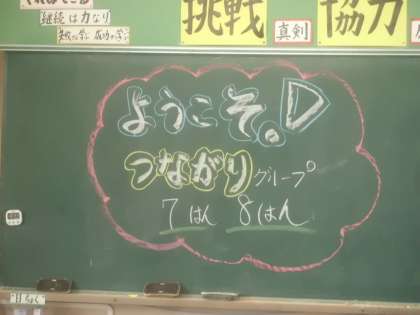 継続は力なり
挑戦
真剣
協力
ようこそ。D
つながりグループ
7はん 8はん